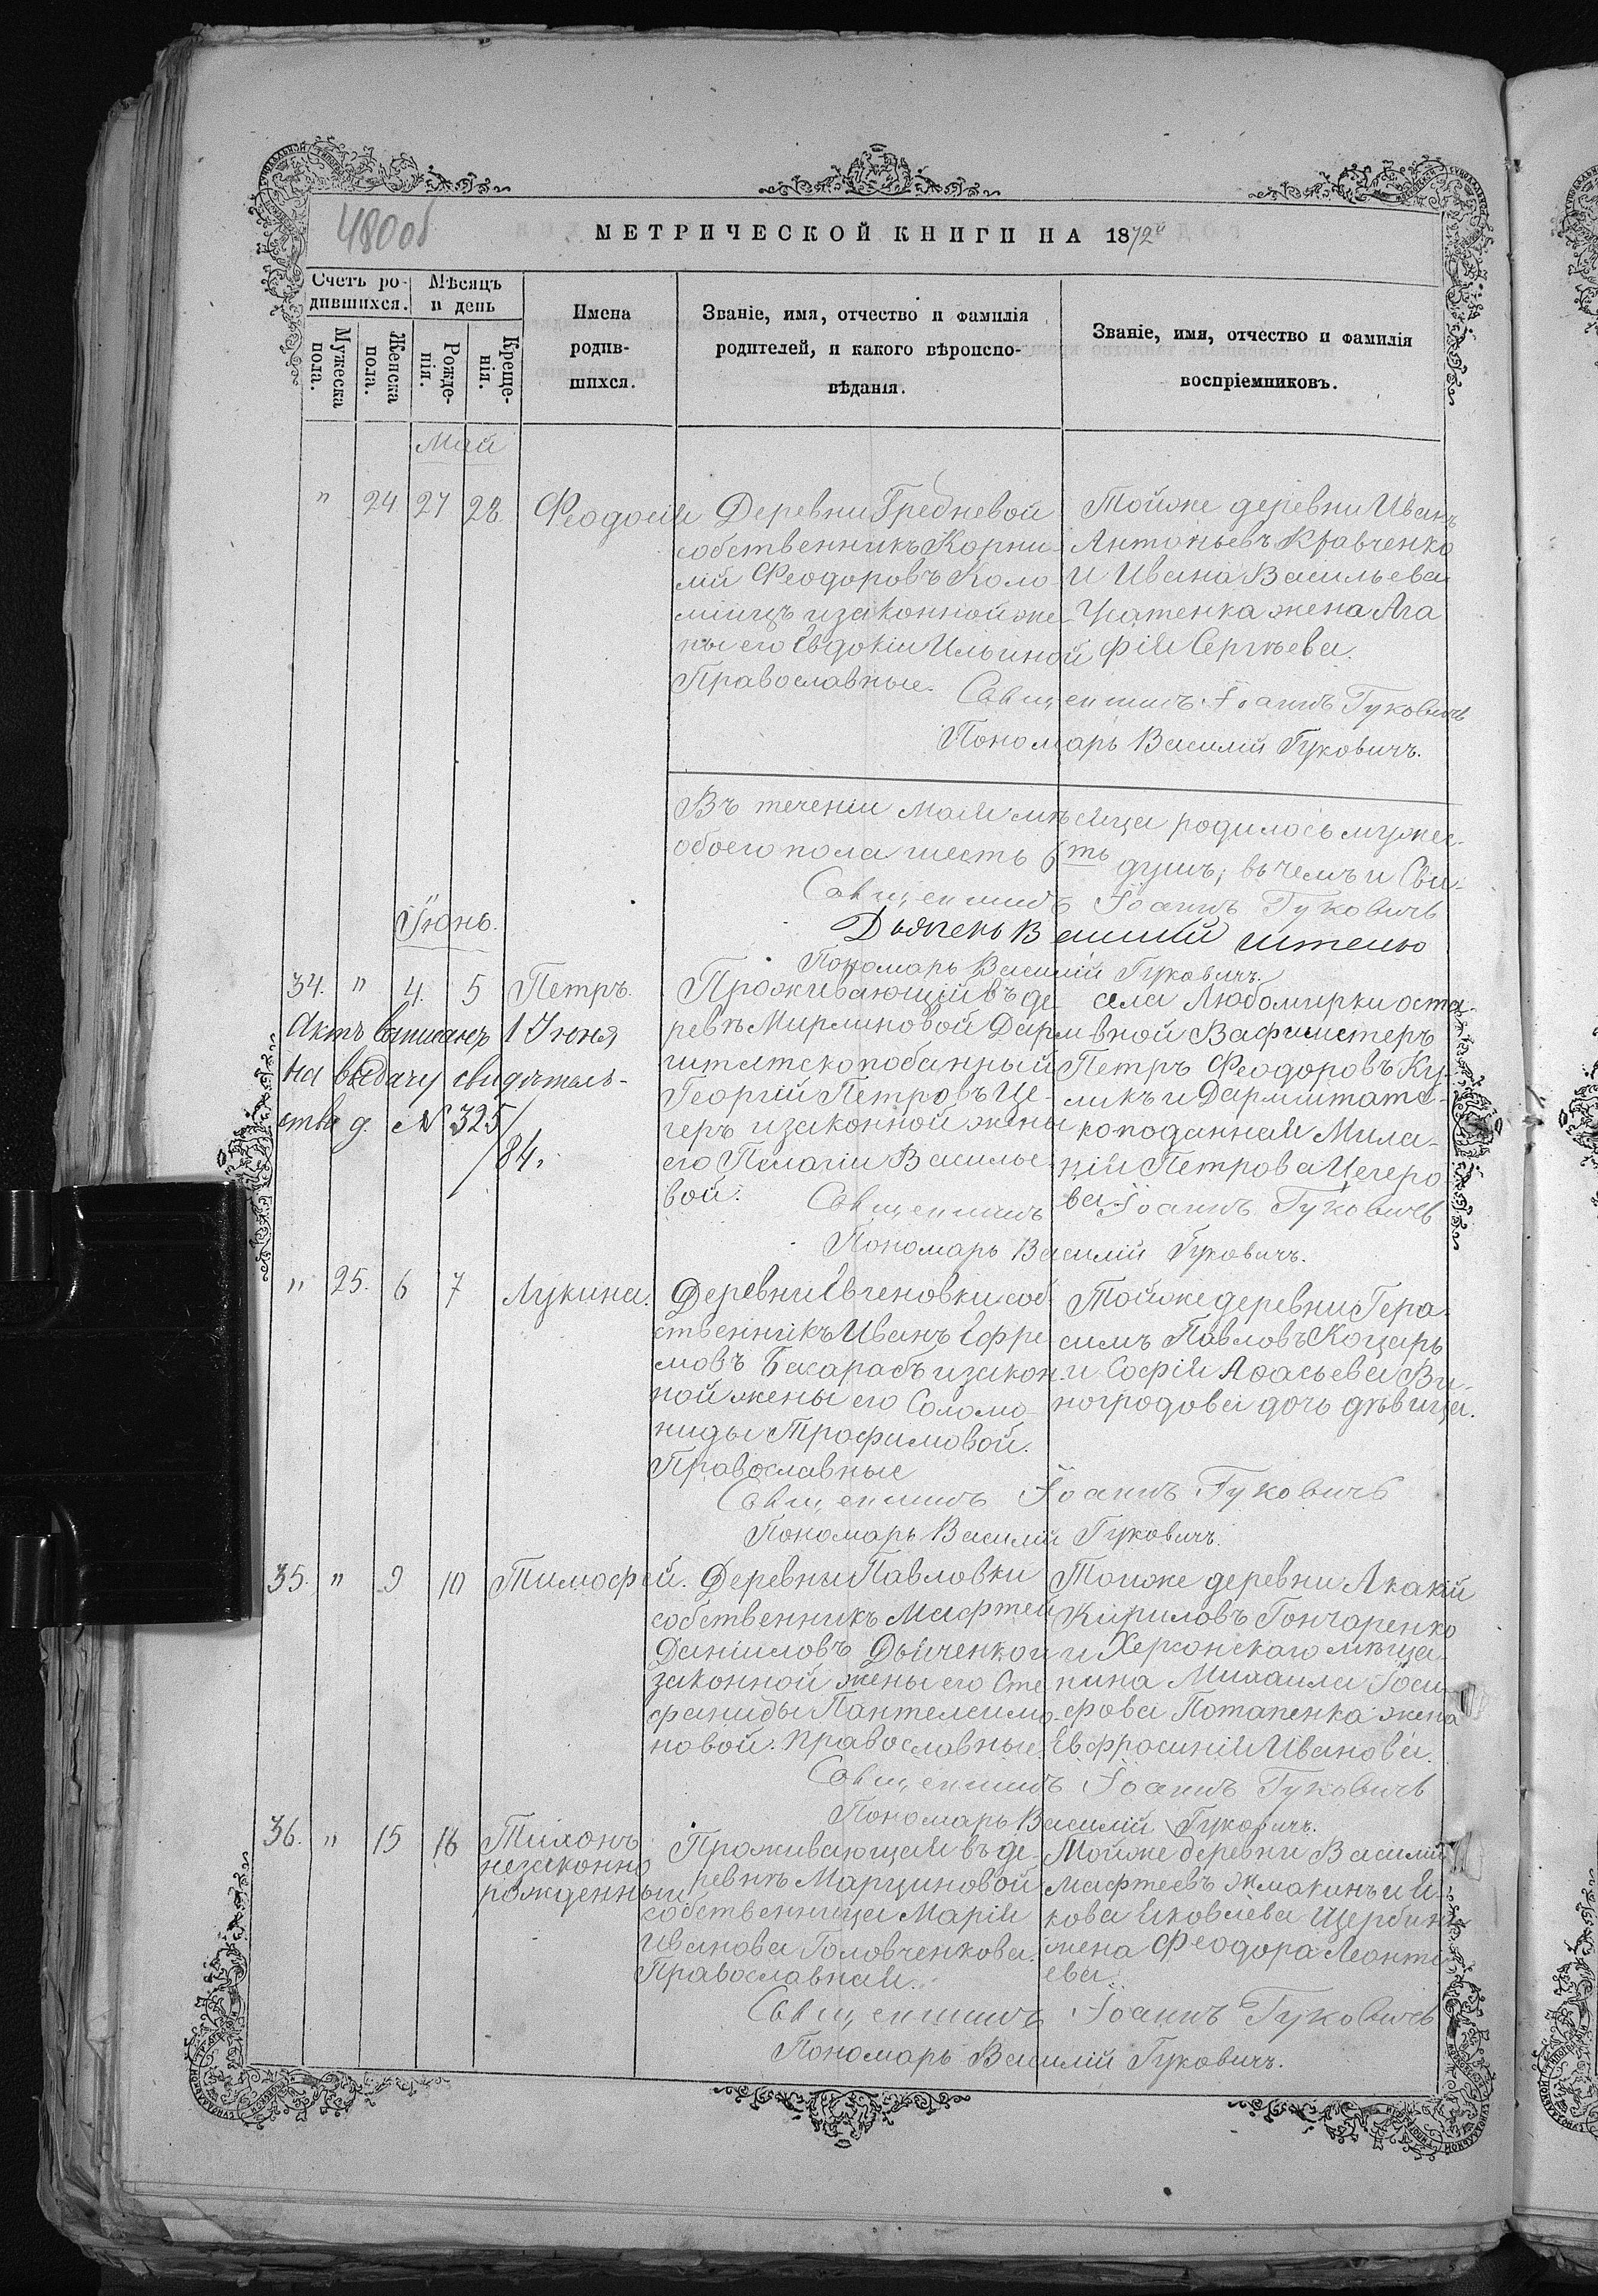 480 об
МЕТРИЧЕСКОЙ КНИГИ НА 1872й
Счетъ ро-
дившихся.
Мѣсяцъ
и день
Мужеска
пола.
Женска
пола.
Рожде-
нія.
Креще-
нія.
Имена
родив-
шихся.
Званіе, имя, отчество и фамилія
родителей, и какого вѣроиспо-
вѣданія.
Званіе, имя, отчество и фамилія
воспріемниковъ.
Май
" 24 27 28 Феодосія
Деревни Гребневой
собственникъ Корни-
лій Феодоровъ Коло
міицъ изаконной же-
ны его Евдокіи Ильиной
Православные.
Тойже деревни Иванъ
Антоньевъ Кравченко
и Ивана Васильева
жена Ага
фія Сергѣева.
Священникъ Іоаннъ Гуковичъ
Пономарь Василій Гуковичъ.
Въ теченіи мая мѣсяца родилось мужес.
обоего пола шесть 6ть душъ; въ чемъ и Сви-
Священникъ Іоаннъ Гуковичъ
Пономарь Василій Гуковичъ.
Іюнь.
34. " 4. 5 Петръ.
Актъ выписанъ 1 Іюня
на выдачу свидѣтель-
ства д. № 325/
/84.
Проживающій въ де
ревнѣ Мирлиновой Дарм
Георгій Петровъ Це-
геръ изаконной жены
его Пелагіи Василье-
вой.
села Любомирки оста-
вной Вафмистеръ
Петръ Феодоровъ Ку-
ликъ и Дармштатс-
коподанная Мила-
нія Петрова Цегеро
ва.
Священникъ Іоаннъ Гуковичъ
Пономарь Василій Гуковичъ.
" 25. 6 7 Лукина.
Деревни Евгеновки соб-
ственникъ Иванъ Ефре
мовъ Бакарабъ изакон-
ной жены его Соломо
ниды Трофимовой.
Православные
Тойже деревни Гера-
симъ Павловъ Коцарь
и Софія Аѳасьева Ви-
ногродова дочь дѣвица.
Священникъ Іоаннъ Гуковичъ
Пономарь Василій Гуковичъ.
35. " 9 10 Тимофей.
Деревни Павловки
собственникъ Мафтей
Даніиловъ Дьяченко и
законной жены его Сте
фаниды Пантелеимо-
новой. Православные.
Тойже деревни Акакій
Кириловъ Гончаренко
и Херсонскаго мѣща-
нина Михаила Іоси-
фова Потапенка жена
Евфросинія Иванова.
Священникъ Іоаннъ Гуковичъ
Пономарь Василій Гуковичъ.
36. " 15 16 Тихонъ
незаконно
рожденный
Проживающая въ де-
ревнѣ Марциновой
собственница Марія
Иванова Головченкова.
Православная.
Тойже деревни Василій
Мафтеевъ Жмакинъ и Я-
кова Яковлева Щербина
жена Феодора Леонти
ева.
Священникъ Іоаннъ Гуковичъ
Пономарь Василій Гуковичъ.